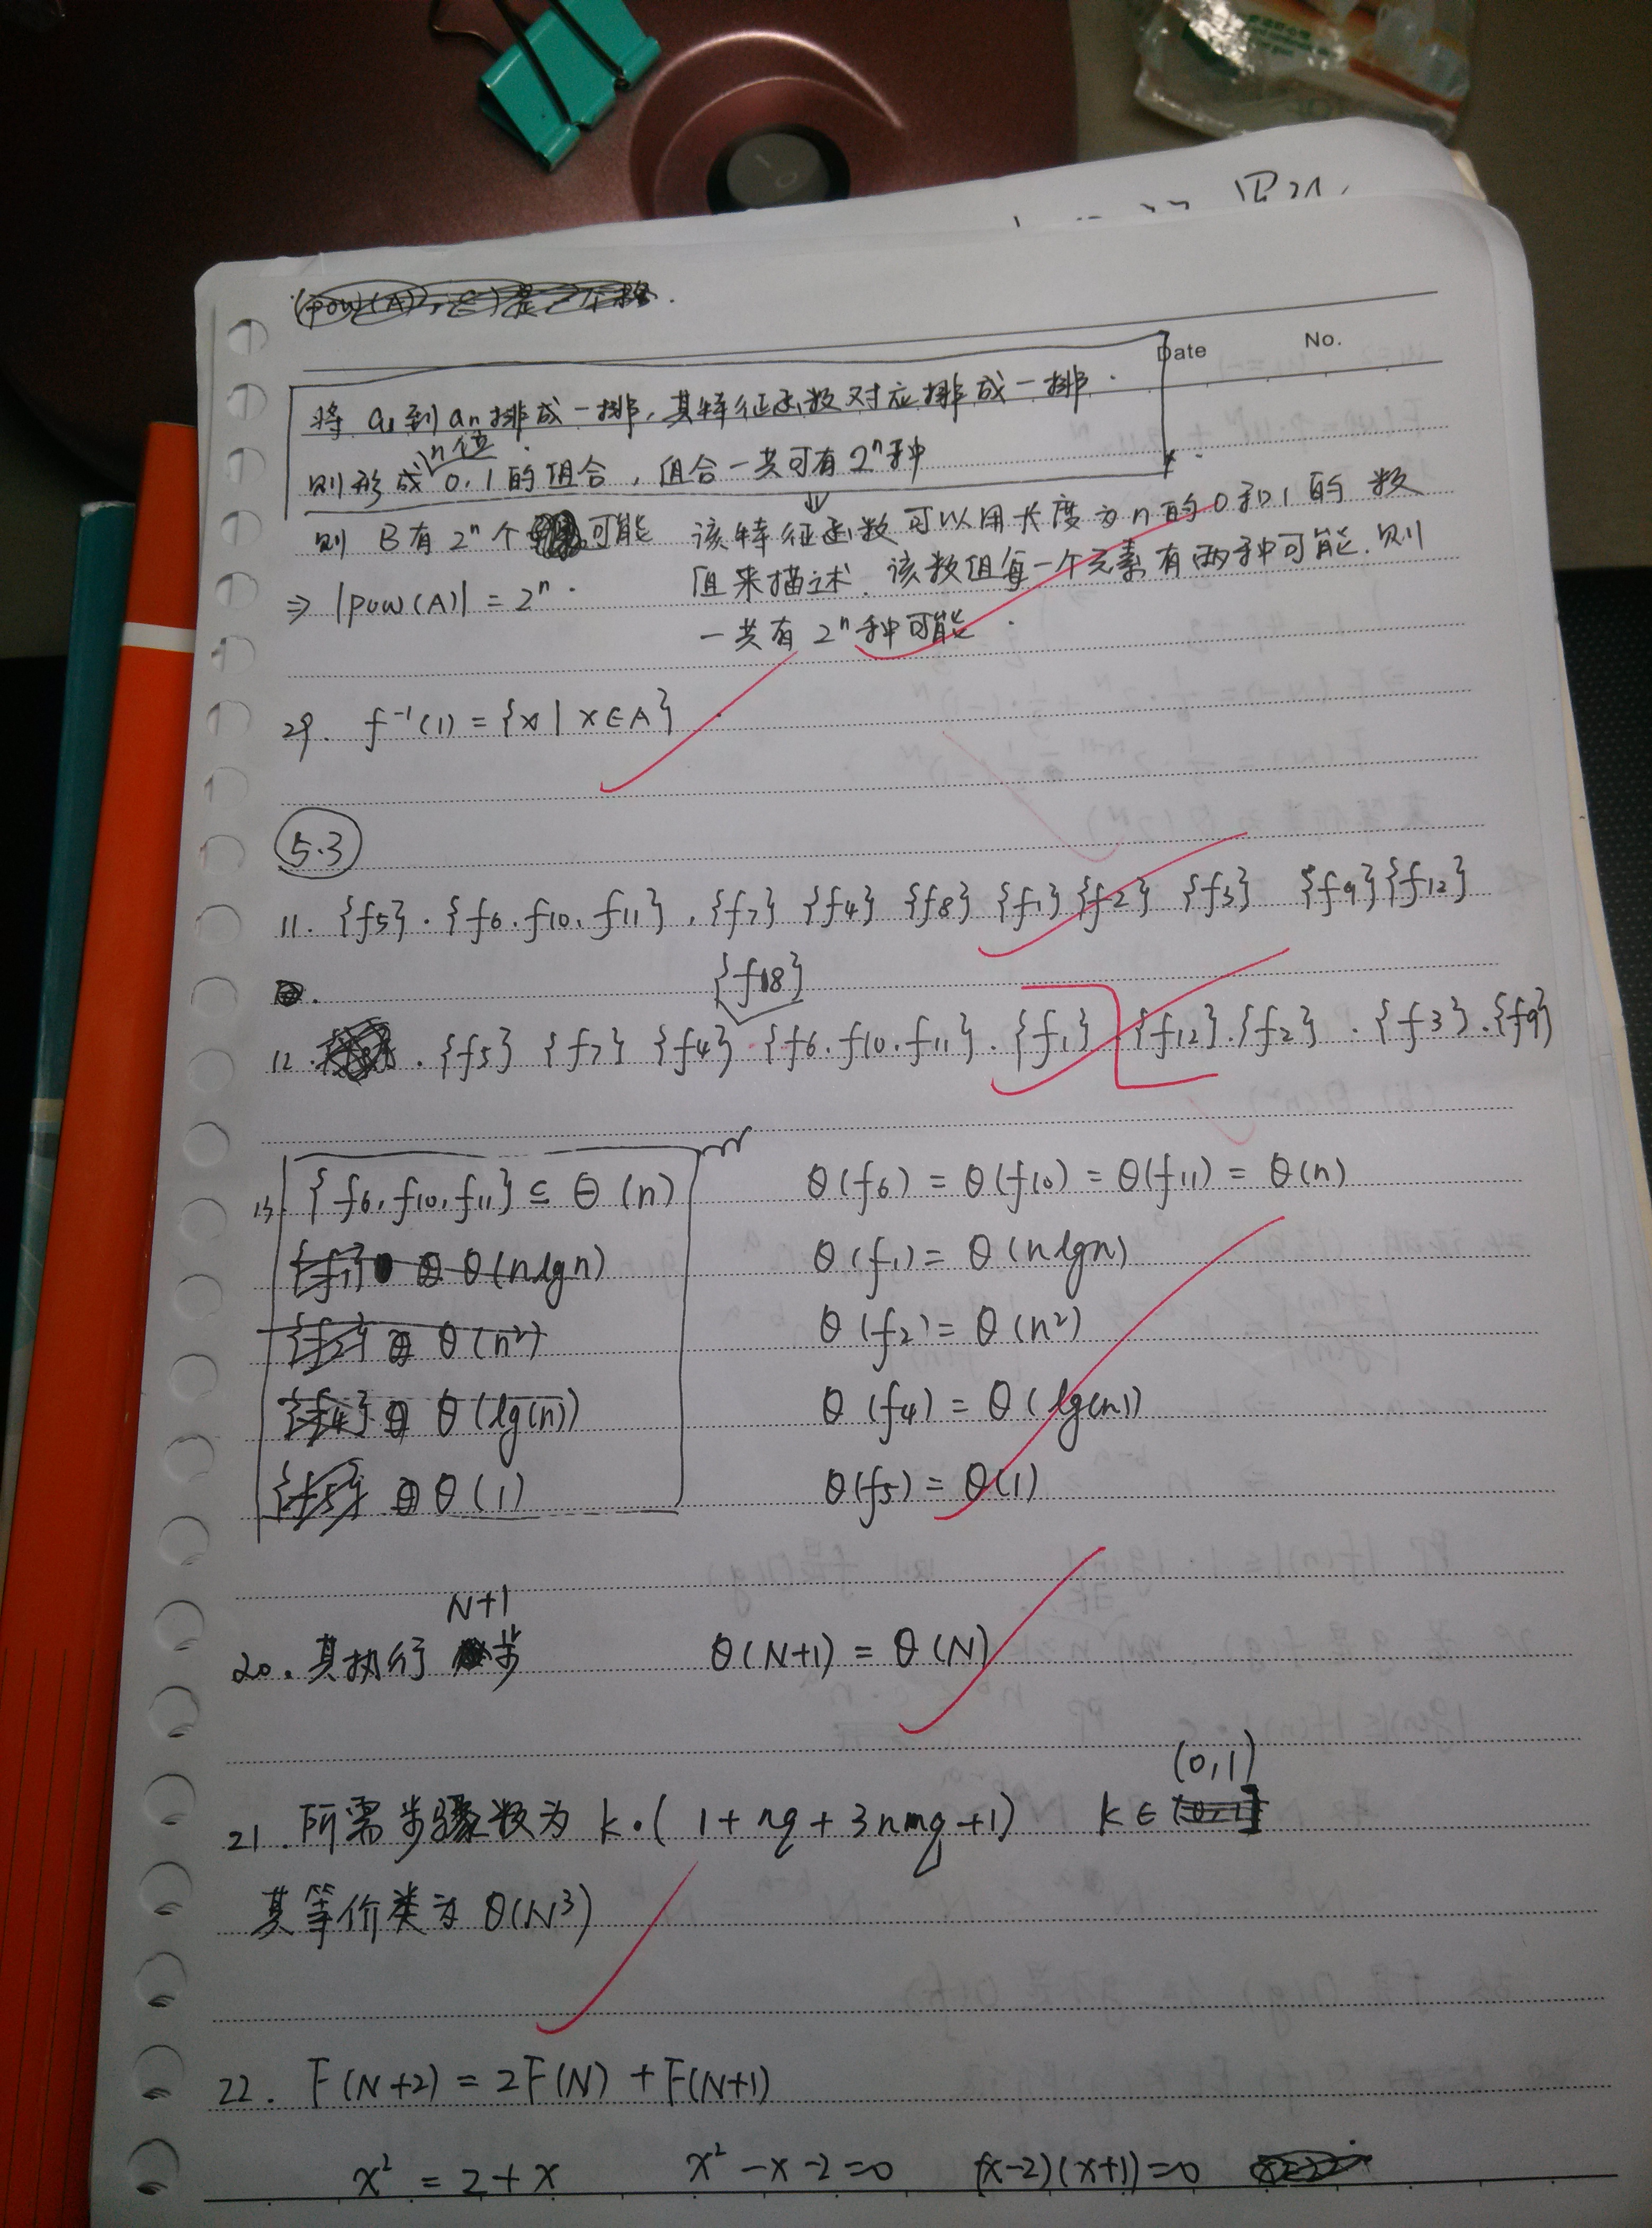 Date No.
将 a₁ 到 an 排成一排,其特征函数对应排成一排.
n位
则形成 0.1 的组合,组合一共可有 2ⁿ种
则 B有 2ⁿ个 可能
⇒ |pow(A)| = 2ⁿ.
⇓
该特征函数可以用长度为n的0和1的数
组来描述.该数组每一个元素有两种可能.则
一共有 2ⁿ种可能.
29. f⁻¹(1) = {x | x∈A}
5.3
11. {f5}.{f6.f10.f11}.{f7} {f4} {f8} {f1} {f2} {f3} {f9}{f12}
{f8}
12. {f5} {f7} {f4}.{f6.f10.f11}.{f1} {f12}.{f2}.{f3}.{f9}
13. {f6,f10,f11} ⊆ Θ(n)
θ(n lgn)
θ(n²)
θ(lg(n))
θ(1)
θ(f6) = θ(f10) = θ(f11) = θ(n)
θ(f1) = θ(n lgn)
θ(f2) = θ(n²)
θ(f4) = θ(lg(n))
θ(f5) = θ(1)
N+1
20. 其执行 步 θ(N+1) = θ(N)
(0,1)
21. 所需步骤数为 k·(1+nq+3nmq+1) k∈
其等价类为 θ(N³)
22. F(N+2) = 2F(N) + F(N+1)
x² = 2+x x²-x-2=0 (x-2)(x+1)=0